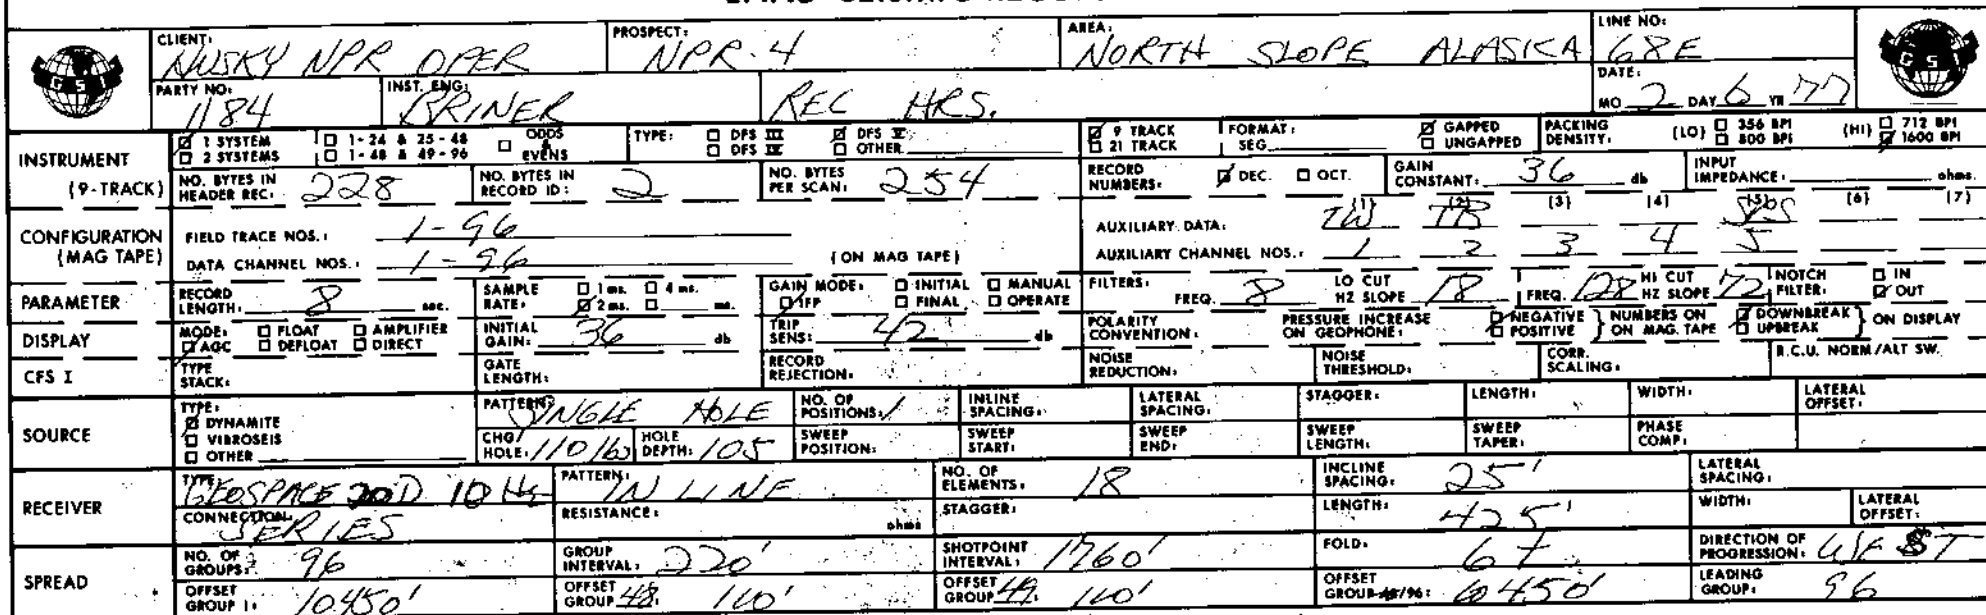 CLIENT: HUSKY NPR OPER PROSPECT: NPR-4 AREA: NORTH SLOPE ALASKA LINE NO: 68E
PARTY NO: 1184 INST. ENG: BRINER REC HRS. DATE: MO 2 DAY 6 YR 77
GSI GSI
INSTRUMENT (9-TRACK)
☑ 1 SYSTEM ☐ 1-24 & 25-48 ☐ ODDS & EVENS TYPE: ☐ DFS III ☑ DFS V ☑ 9 TRACK FORMAT: ☑ GAPPED PACKING DENSITY: (LO) ☐ 356 BPI (HI) ☐ 712 BPI
☐ 2 SYSTEMS ☐ 1-48 & 49-96 ☐ DFS IV ☐ OTHER ☐ 21 TRACK SEG. ☐ UNGAPPED ☐ 800 BPI ☑ 1600 BPI
NO. BYTES IN HEADER REC: 228 NO. BYTES IN RECORD ID: 2 NO. BYTES PER SCAN: 254 RECORD NUMBERS: ☑ DEC. ☐ OCT. GAIN CONSTANT: 36 db INPUT IMPEDANCE: ohms.
CONFIGURATION (MAG TAPE)
FIELD TRACE NOS.: 1-96 AUXILIARY DATA: (1) TW (2) TB (3) (4) (5) (6) (7)
DATA CHANNEL NOS.: 1-96 (ON MAG TAPE) AUXILIARY CHANNEL NOS.: 1 2 3 4 5
PARAMETER RECORD LENGTH: 8 sec. SAMPLE RATE: ☐ 1 ms. ☐ 4 ms. ☑ 2 ms. ☐ ms. GAIN MODE: ☐ INITIAL ☐ MANUAL ☑ IFP ☐ FINAL ☐ OPERATE FILTERS: FREQ. 8 LO CUT HZ SLOPE 18 FREQ. 128 HI CUT HZ SLOPE 72 NOTCH FILTER: ☐ IN ☑ OUT
DISPLAY MODE: ☐ FLOAT ☐ AMPLIFIER ☑ AGC ☐ DEFLOAT ☐ DIRECT INITIAL GAIN: 36 db TRIP SENS: 42 db POLARITY CONVENTION: PRESSURE INCREASE ON GEOPHONE: ☑ NEGATIVE ☐ POSITIVE } NUMBERS ON MAG. TAPE ☑ DOWNBREAK ☐ UPBREAK } ON DISPLAY
CFS I TYPE STACK: GATE LENGTH: RECORD REJECTION: NOISE REDUCTION: NOISE THRESHOLD: CORR. SCALING: R.C.U. NORM/ALT SW.
SOURCE TYPE: ☑ DYNAMITE ☐ VIBROSEIS ☐ OTHER PATTERN: SINGLE HOLE NO. OF POSITIONS: 1 INLINE SPACING: LATERAL SPACING: STAGGER: LENGTH: WIDTH: LATERAL OFFSET:
CHG/HOLE: 110 lbs HOLE DEPTH: 105 SWEEP POSITION: SWEEP START: SWEEP END: SWEEP LENGTH: SWEEP TAPER: PHASE COMP:
RECEIVER TYPE: GEOSPACE 20D 10 Hz PATTERN: IN LINE NO. OF ELEMENTS: 18 INCLINE SPACING: 25' LATERAL SPACING:
CONNECTION: SERIES RESISTANCE: ohms STAGGER: LENGTH: 425' WIDTH: LATERAL OFFSET:
SPREAD NO. OF GROUPS: 96 GROUP INTERVAL: 220' SHOTPOINT INTERVAL: 1760' FOLD: 6 DIRECTION OF PROGRESSION: WEST
OFFSET GROUP 1: 10450' OFFSET GROUP 48: 110' OFFSET GROUP 49: 110' OFFSET GROUP 48/96: 10450' LEADING GROUP: 96